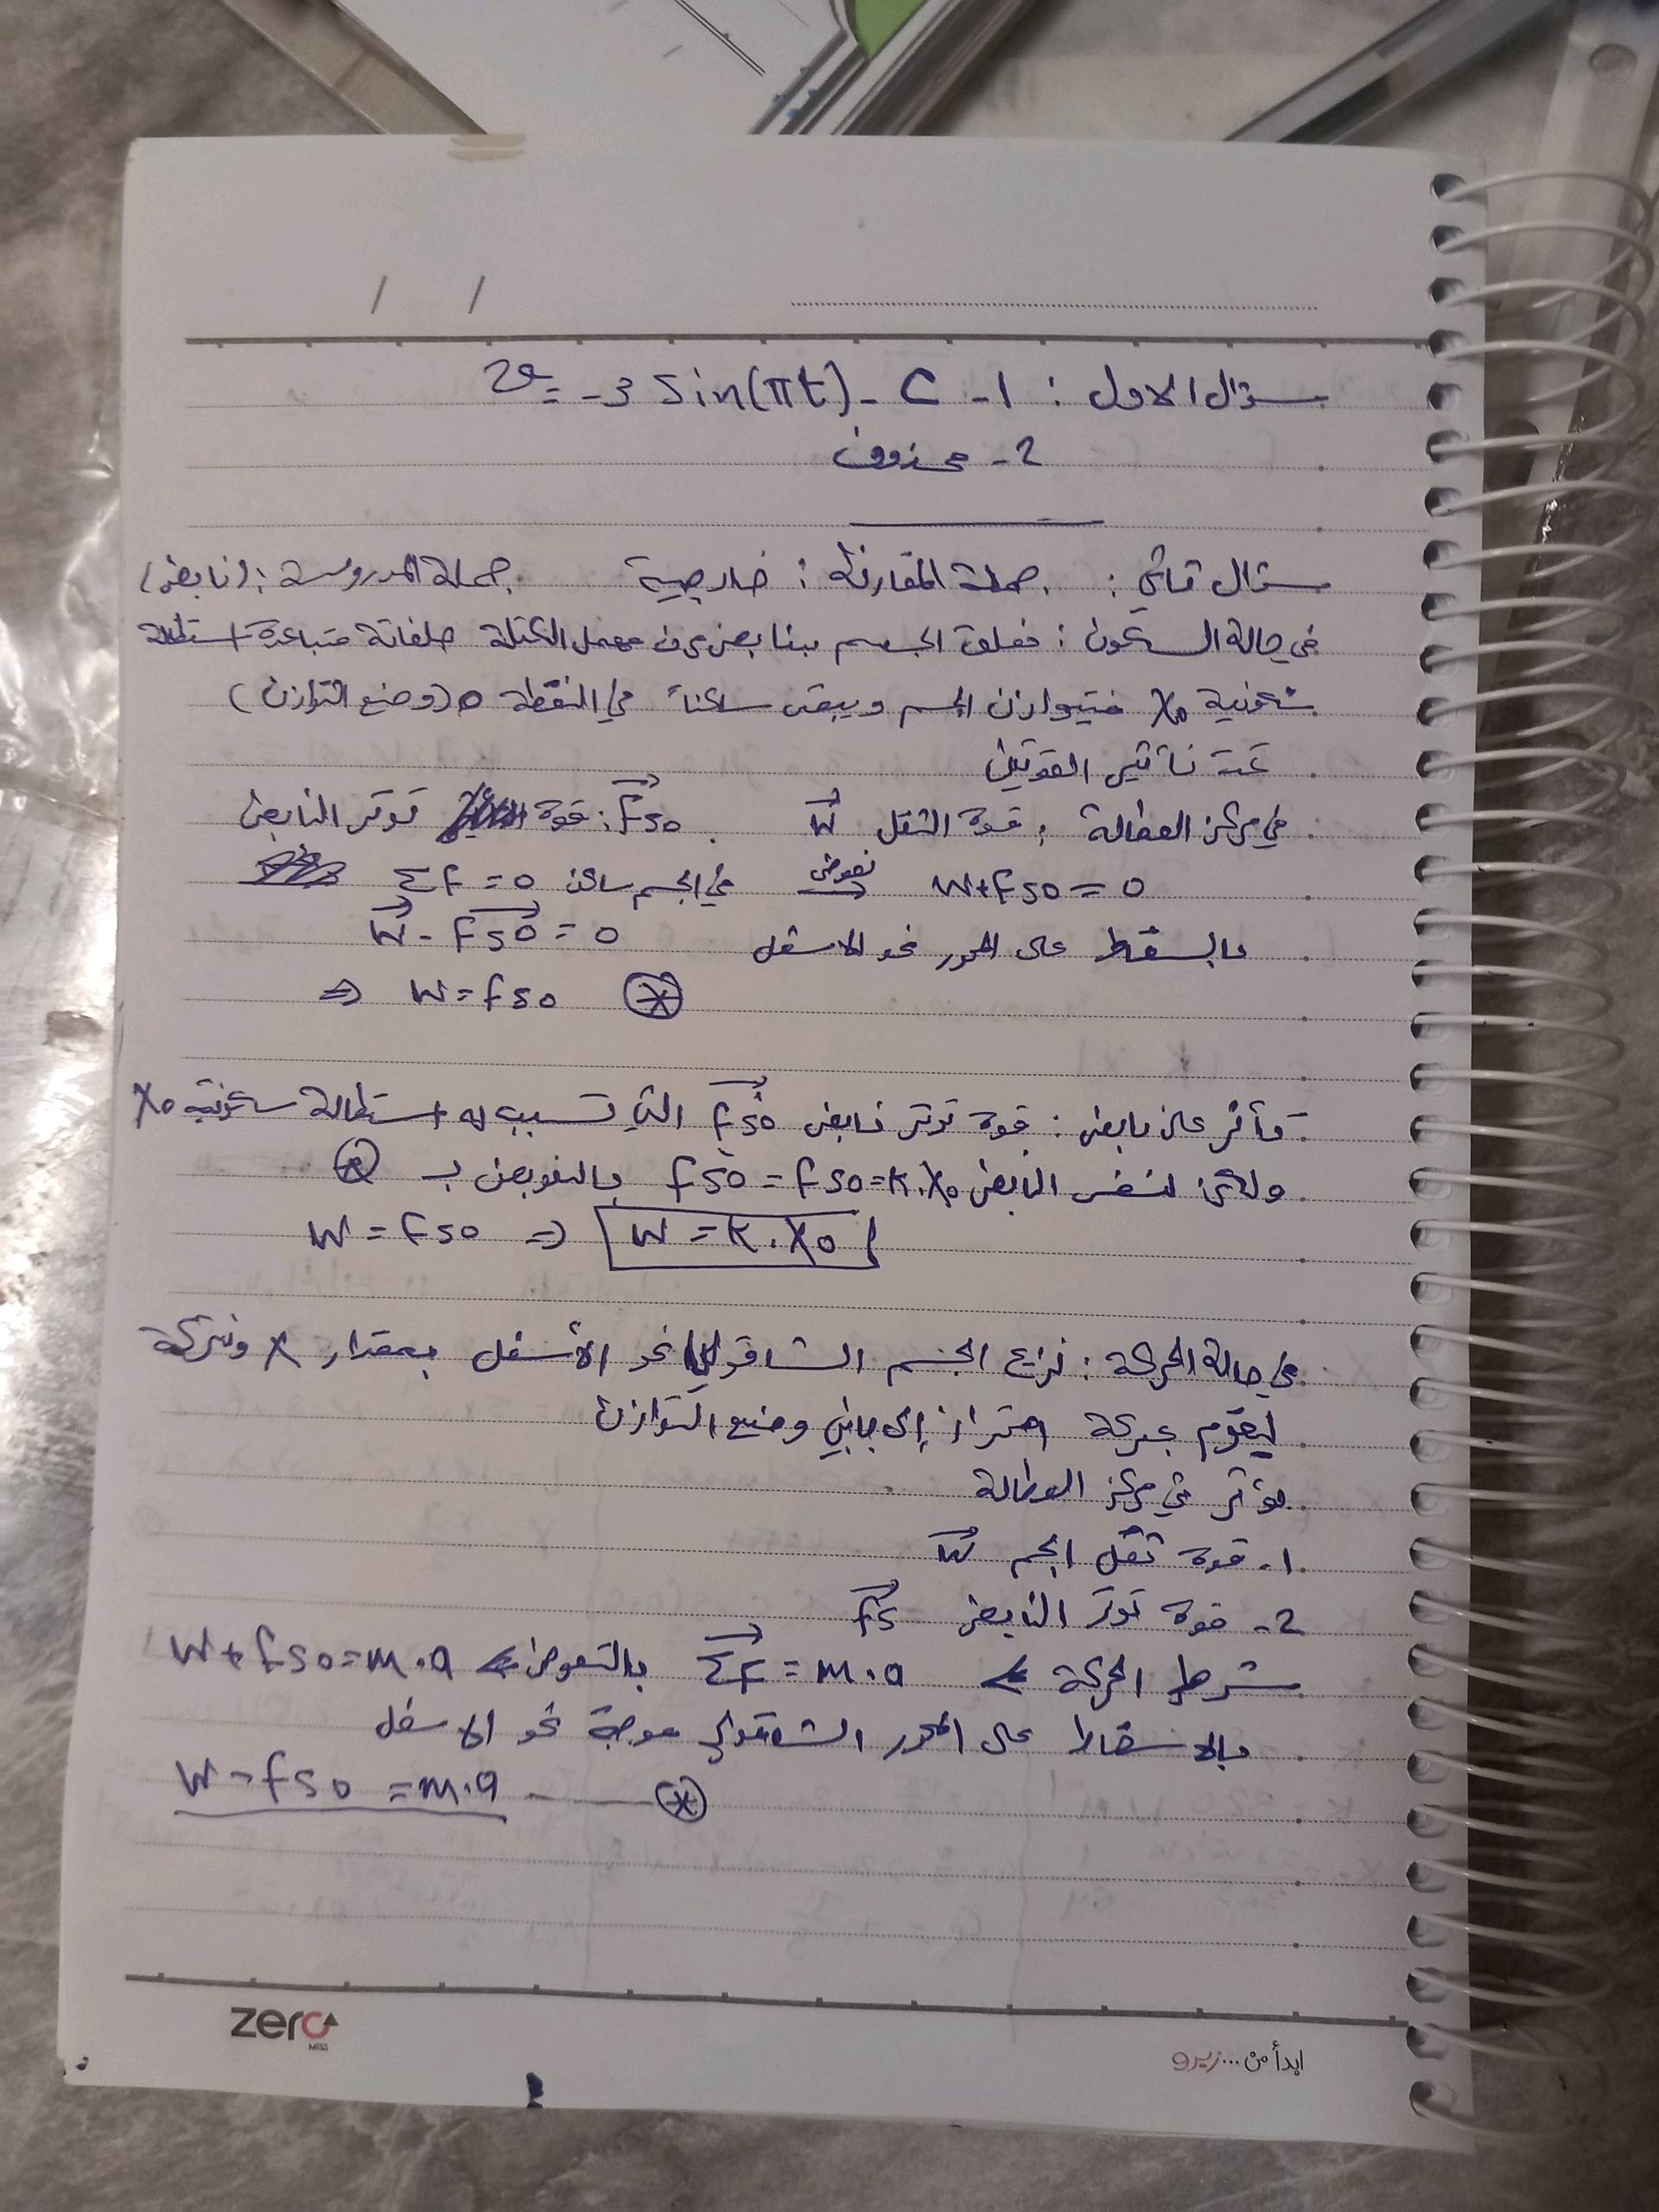 / /
سؤال الاول : 1 - C - v = -3 Sin(πt)
2 - محذوف
سؤال ثاني : جملة المقارنة : خارجية جملة المدروسة : (نابض)
في حالة السكون : فعلق الجسم بنابض مرن مهمل الكتلة حلقاته متباعدة استطالة
سكونية X0 فيتوازن الجسم ويبقى ساكناً في النقطة o (وضع التوازن)
تحت تأثير القوتين
في مركز العطالة : قوة الثقل W . Fs0 : قوة توتر النابض
في الجسم ساكن ΣF = 0 نعوض W + Fs0 = 0
بالسقط على المحور نحو الاسفل W - Fs0 = 0
⇒ W = Fs0 ⊛
تأثر على نابض : قوة توتر نابض F's0 التي تسبب له استطالة سكونية X0
ولكن لنفس النابض F's0 = Fs0 = K.X0 بالتعويض ب ⊛
W = Fs0 ⇒ W = K.X0
في حالة الحركة : نزيح الجسم الشاقولي نحو الأسفل بمقدار X ونتركه
ليقوم بحركة اهتزاز إلى جانبي وضع التوازن
يؤثر في مركز العطالة
1- قوة ثقل الجسم W
2- قوة توتر النابض Fs
شرط الحركة ← ΣF = m.a بالتعويض ← W + Fs0 = m.a
بالاسقاط على المحور الشاقولي موجهة نحو الاسفل
W - Fs0 = m.a ⊛
zero
MISS
ابدأ من ... زيرو